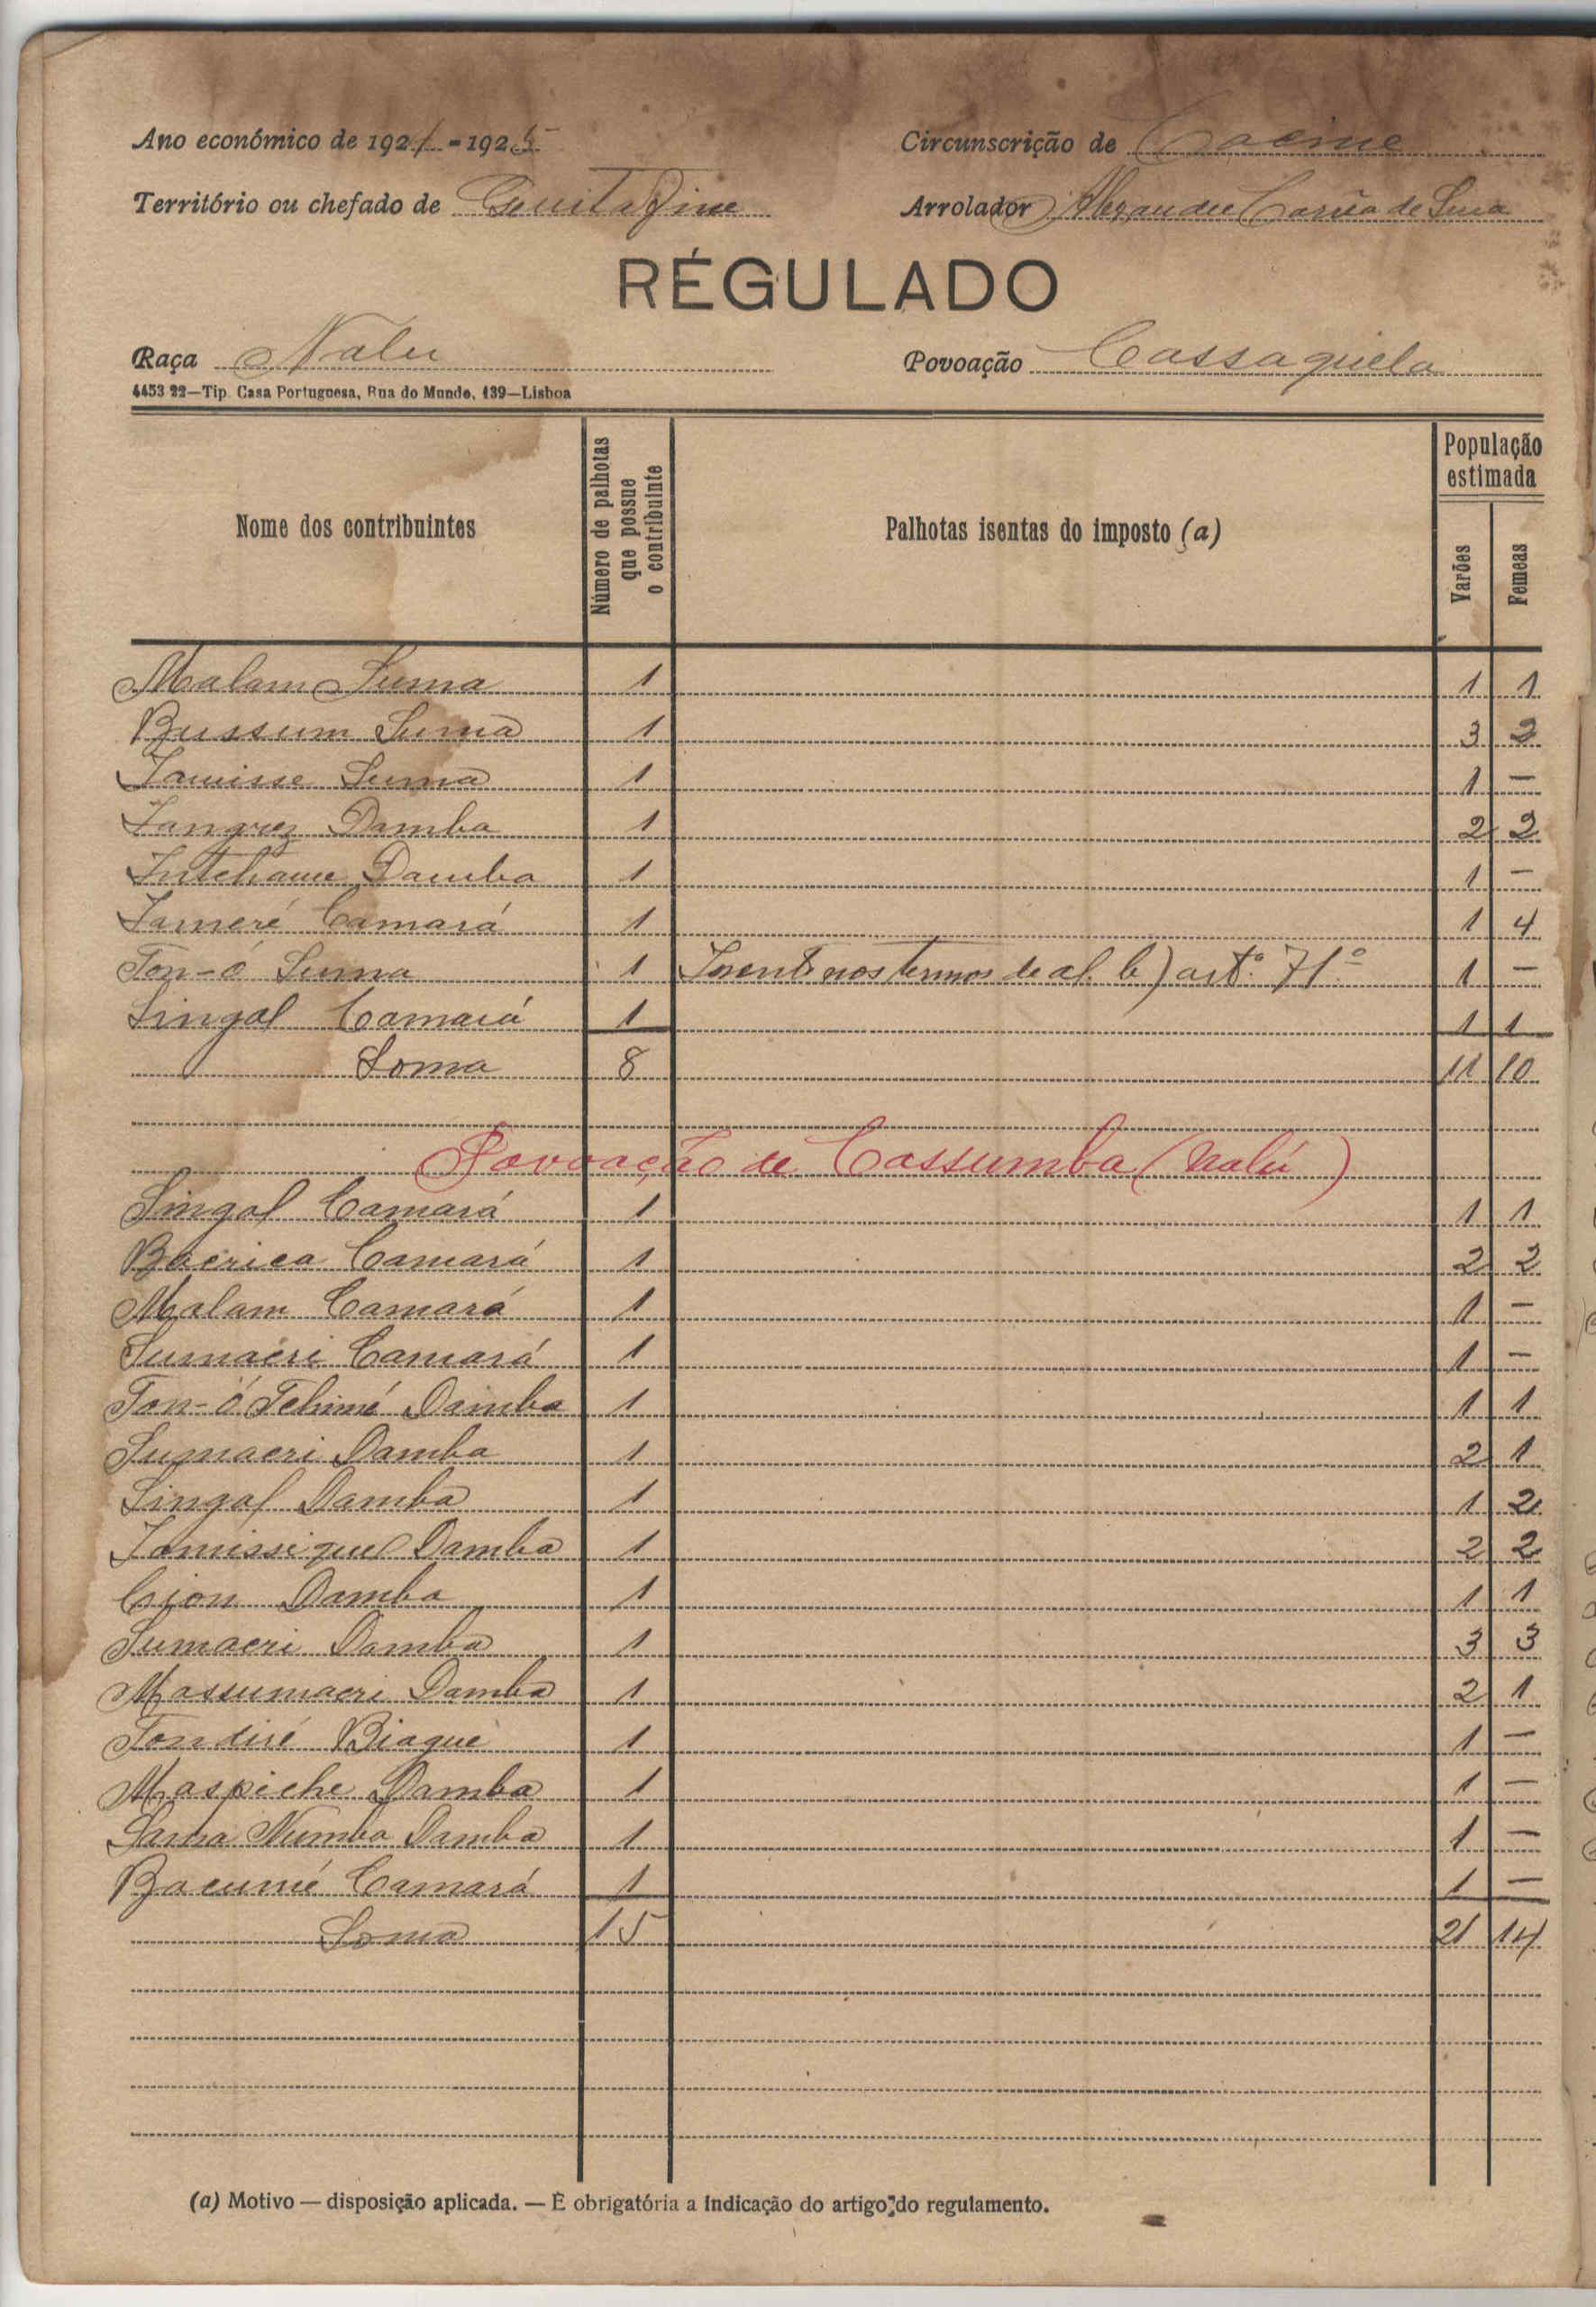 Ano económico de 1924 - 1925
Circunscrição de Cacine
Território ou chefado de Guitafine
Arrolador Alexandre Corrêa de
RÉGULADO
Raça Nalu
Povoação Cassaquela
4453 22—Tip. Casa Portuguesa, Rua do Mundo, 139—Lisboa
Nome dos contribuintes
Número de palhotas que possue o contribuinte
Palhotas isentas do imposto (a)
População estimada
Varões
Femeas
Malam Suma 1 1 1
Bussum Suma 1 3 2
Suma 1 1 —
Damba 1 2 2
Damba 1 1 —
Lameré Camará 1 1 4
Ton-ó Suma 1 Isento nos termos de al. b) artº. 71º 1 —
Lingal Camará 1 1 1
Soma 8 11 10
Povoação de Cassumba (Nalú)
Lingal Camará 1 1 1
Camará 1 2 2
Malam Camará 1 1 —
Sumaeri Camará 1 1 —
Ton-ó Tchimé Damba 1 1 1
Sumaeri Damba 1 2 1
Lingal Damba 1 1 2
Damba 1 2 2
Damba 1 1 1
Sumaeri Damba 1 3 3
Massumaeri Damba 1 2 1
Tondiré Biague 1 1 —
Maspiche Damba 1 1 —
Lama Numba Damba 1 1 —
Bacumé Camará 1 1 —
Soma 15 21 14
(a) Motivo — disposição aplicada. — É obrigatória a indicação do artigo do regulamento.